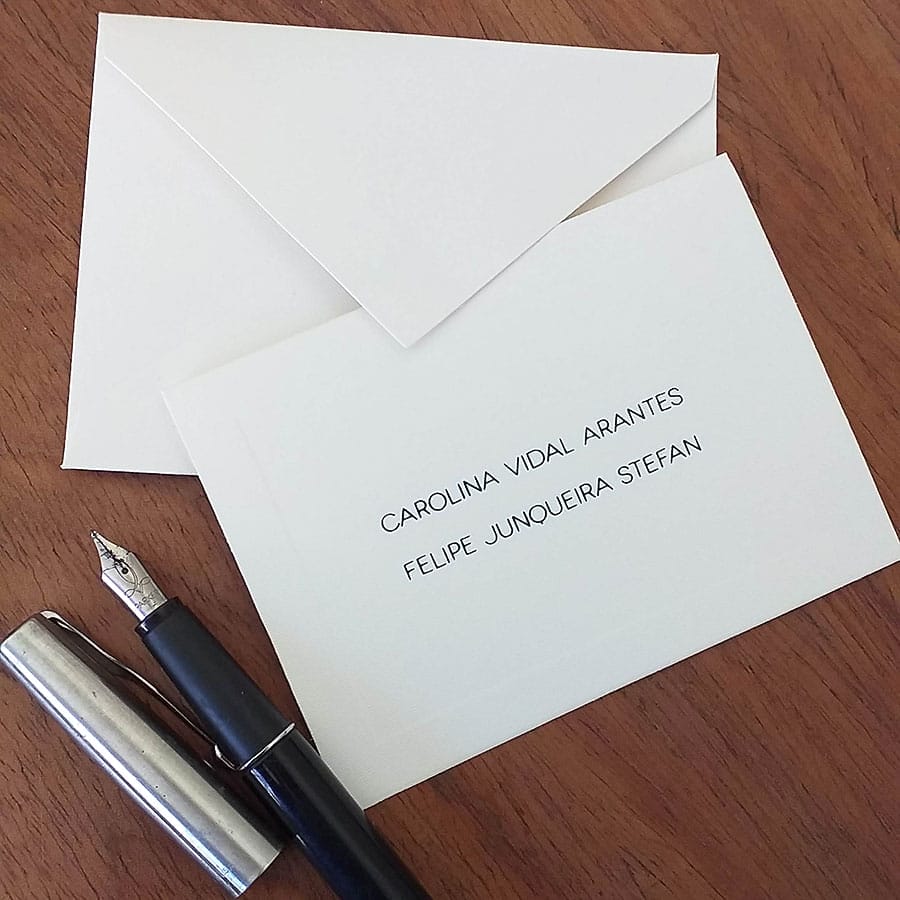 CAROLINA VIDAL ARANTES
FELIPE JUNQUEIRA STEFAN